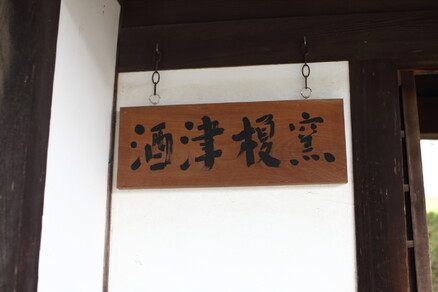 酒津榎窯